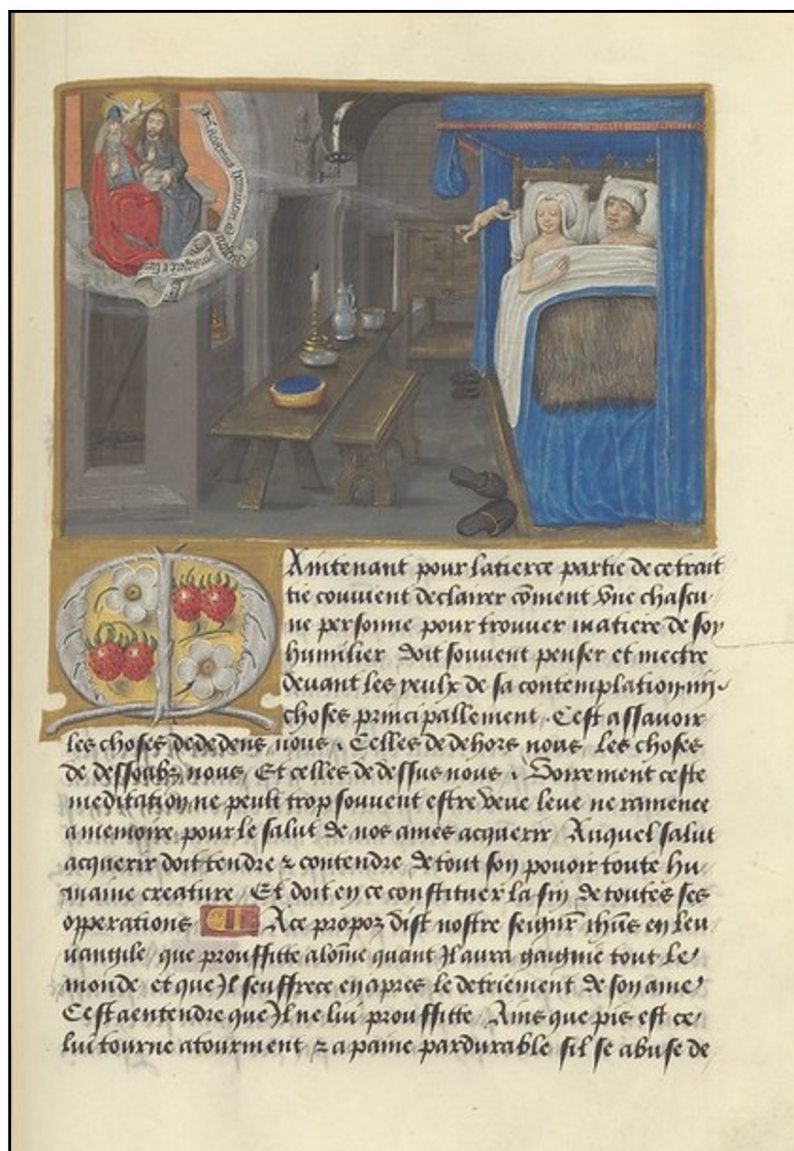 faciamus hominem ad
ymaginem et similitudinem
nostram
Maintenant pour la tierce partie de ce trait
tie couvient declairer cõment vne chascu
ne personne pour trouver matiere de soy
humilier doit souvent penser et mectre
devant les yeulx de sa contemplation iiij
choses principallement. Cest assavoir
les choses de dedens nous. Celles de dehors nous les choses
de dessoubz nous Et celles de dessus nous. Voirement ceste
meditation ne peult trop souvent estre veue leue ne ramenee
a memoire pour le salut de nos ames acquerir Auquel salut
acquerir doit tendre ⁊ contendre de tout son pouoir toute hu
maine creature Et doit en ce constituer la fin de toutes ses
opperations A ce propoz dist nostre seignr̃ ihũs en leu
uangile que prouffitte a lõme quant Il aura gaignie tout le
monde et que Il seuffrece en apres le detriement de son ame
Cest a entendre que Il ne lui prouffitte Ains que pis est ce
lui tourne a tourment ⁊ a paine pardurable sil se abuse de